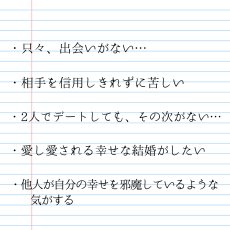 ・只々、出会いがない…
・相手を信用しきれずに苦しい
・2人でデートしても、その次がない…
・愛し愛される幸せな結婚がしたい
・他人が自分の幸せを邪魔しているような
気がする